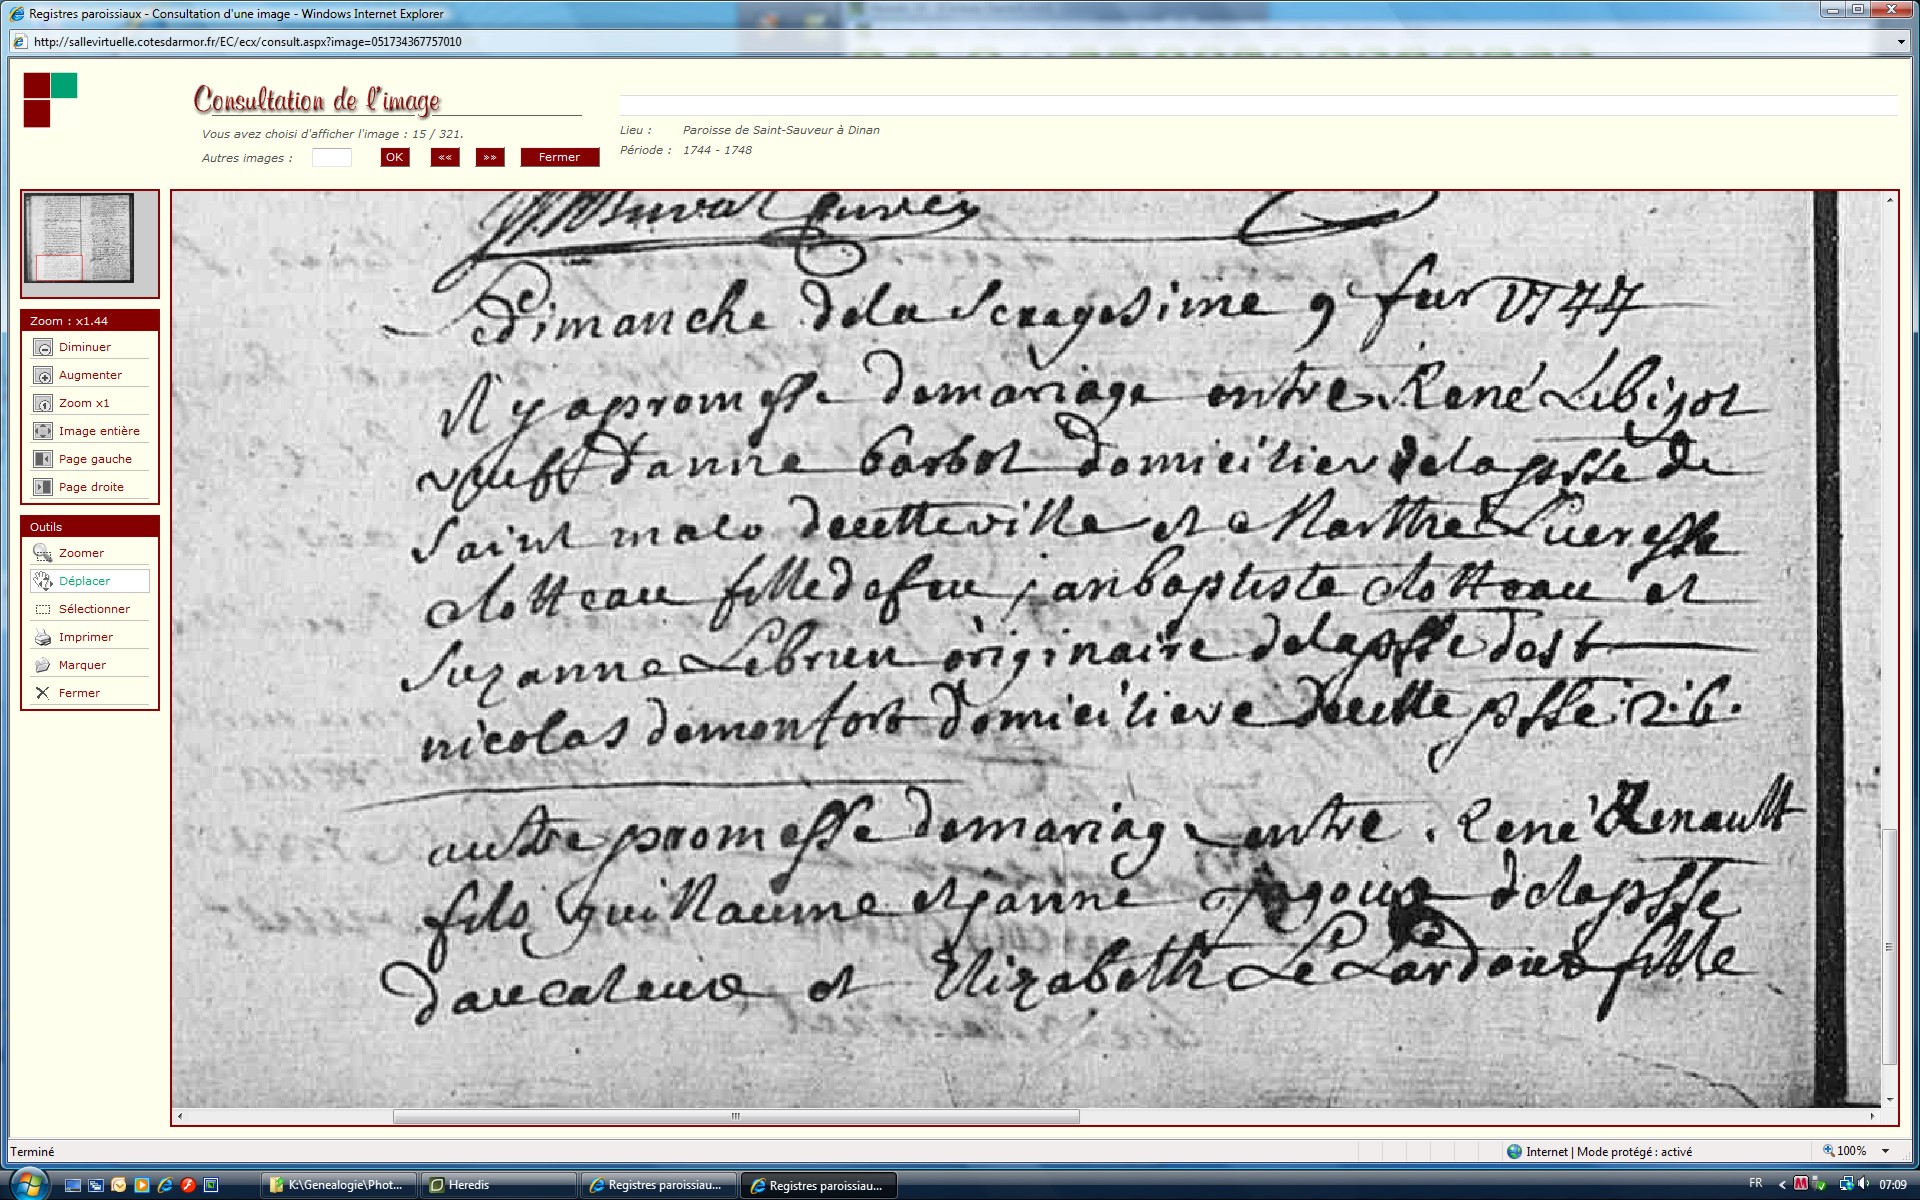 Registres paroissiaux - Consultation d'une image - Windows Internet Explorer
http://sallevirtuelle.cotesdarmor.fr/EC/ecx/consult.aspx?image=051734367757010
Consultation de l'image
Vous avez choisi d'afficher l'image : 15 / 321.
Autres images :
OK
««
»»
Fermer
Lieu : Paroisse de Saint-Sauveur à Dinan
Période : 1744 - 1748
Zoom : x1.44
Diminuer
Augmenter
Zoom x1
Image entière
Page gauche
Page droite
Outils
Zoomer
Déplacer
Sélectionner
Imprimer
Marquer
Fermer
Duval
Dimanche dela Sexagesime 9e feur 1744
il y a promesse demariage entre René Lebigot
veuff d'anne barbot domicilier delapsse de
Saint malo decetteville et Marthe Lucresse
clotteau fille defeu jan baptiste clotteau et
Suzanne Lebrun originaire delapsse dest
nicolas demonfort domiciliere decette psse 2. b.
autre promesse demariage entre René Renault
fils guillaume et janne delapsse
daucaleuc et Elizabeth Le Lardoux fille
Terminé
Internet | Mode protégé : activé
100%
K:\Genealogie\Phot...
Heredis
Registres paroissiau...
Registres paroissiau...
FR
07:09